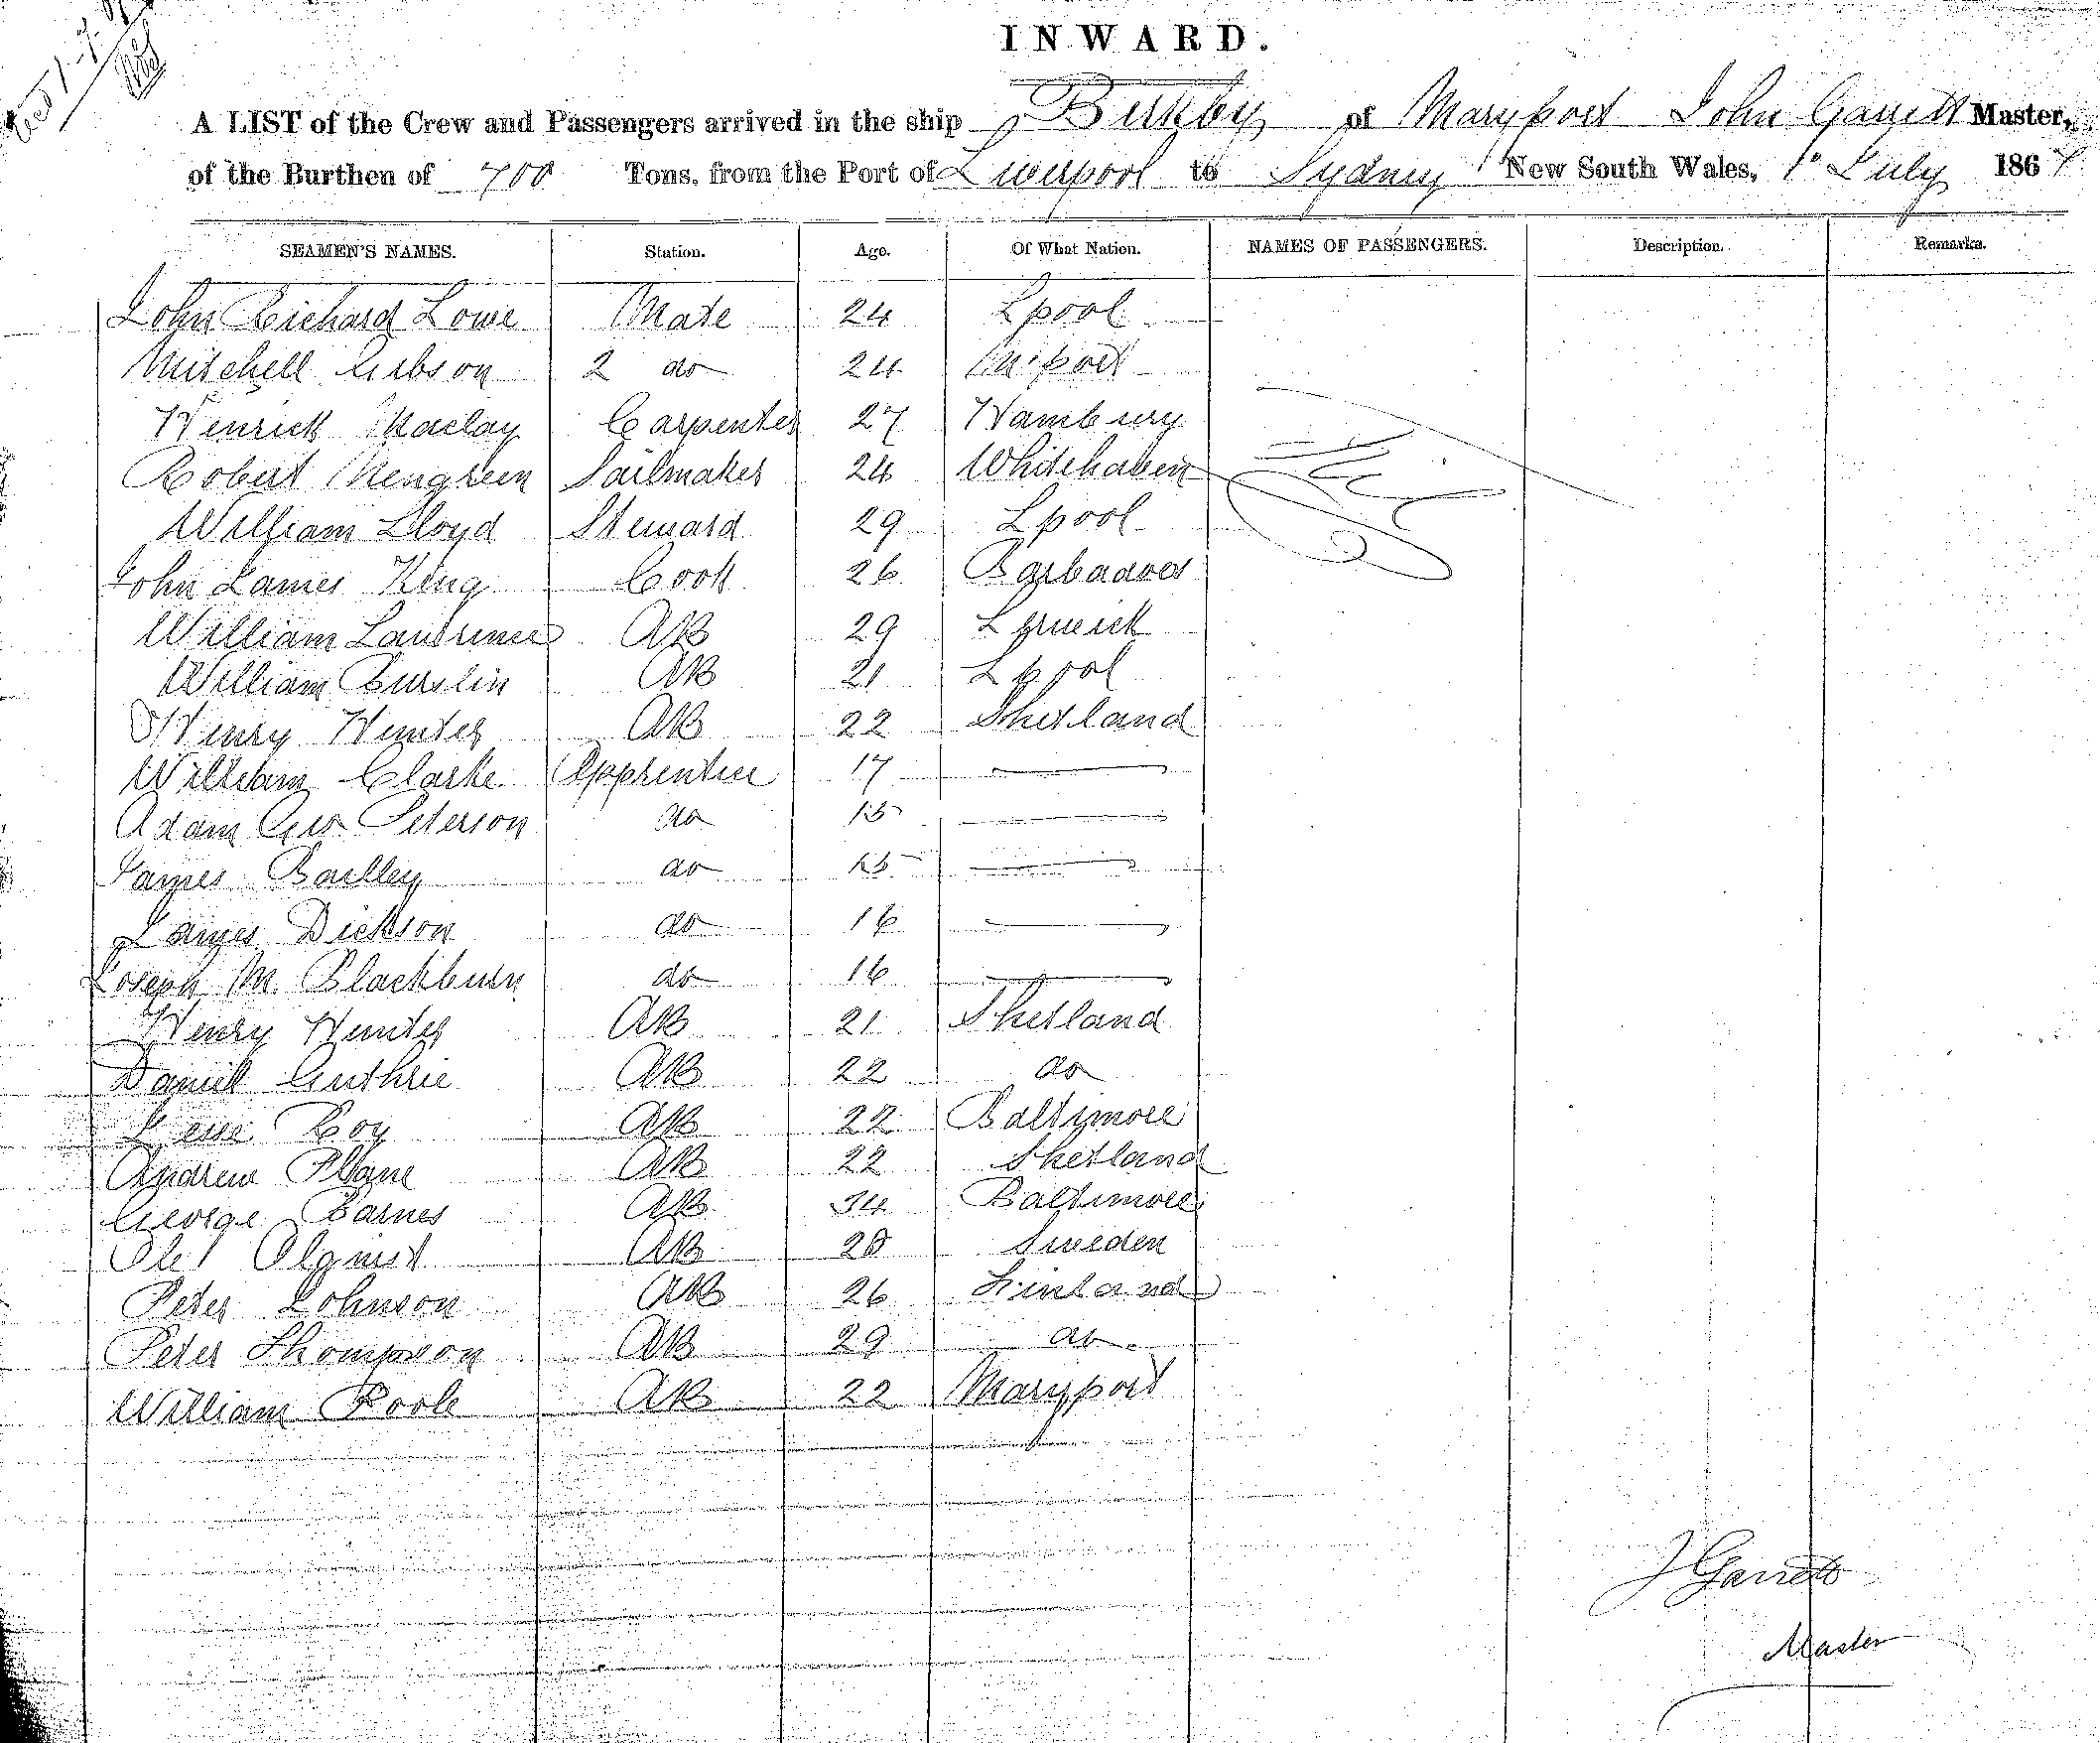 INWARD.
A LIST of the Crew and Passengers arrived in the ship Birkby of Maryport John Garrett Master,
of the Burthen of 700 Tons, from the Port of Liverpool to Sydney New South Wales, 1st July 1867
SEAMEN'S NAMES. Station. Age. Of What Nation. NAMES OF PASSENGERS. Description. Remarks.
John Richard Lowe Mate 24 Lpool
Mitchell Gibson 2 do 24 M.port
Henrick Maclay Carpenter 27 Hamburg
Robert Sailmaker 24 Whitehaven
William Lloyd Steward 29 Lpool
John James King Cook 26 Barbados
William Laurence AB 29 Lerwick
William Burslin AB 21 Lpool
Henry Hunter AB 22 Shetland
William Clarke Apprentice 17
Adam Geo Peterson do 15
James Bailley do 15
James Dickson do 16
Joseph M. Blackburn do 16
Henry Hunter AB 21 Shetland
Daniel Guthrie AB 22 do
Roy AB 22 Baltimore
Andrew AB 22 Shetland
George Barnes AB 34 Baltimore
Olquist AB 28 Sweden
Peter Johnson AB 26 Finland
Peter Thompson AB 29 do
William Poole AB 22 Maryport
J Garrett
Master